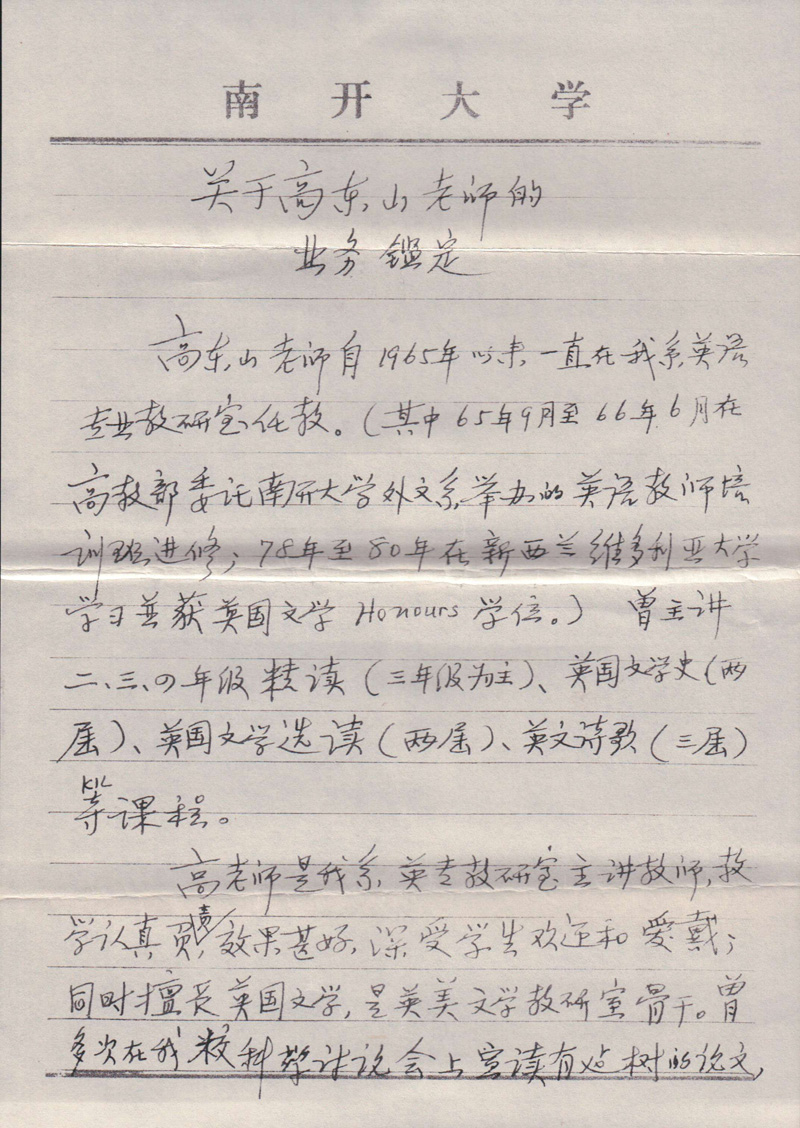 南开大学
关于高东山老师的
业务鑑定
高东山老师自1965年以来一直在我系英语
专业教研室任教。(其中65年9月至66年6月在
高教部委托南开大学外文系举办的英语教师培
训班进修;78年至80年在新西兰维多利亚大学
学习并获英国文学Honours学位。) 曾主讲
二、三、四年级精读(三年级为主)、英国文学史(两
届)、英国文学选读(两届)、英文诗歌(三届)
等课程。
高老师是我系英专教研室主讲教师,教
学认真负责,效果甚好,深受学生欢迎和爱戴;
同时擅长英国文学,是英美文学教研室骨干。曾
多次在我校科学讨论会上宣读有
的论文,